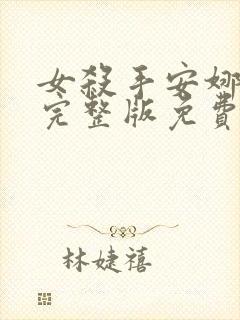 女殺手安娜
完整版免費
林婕禧